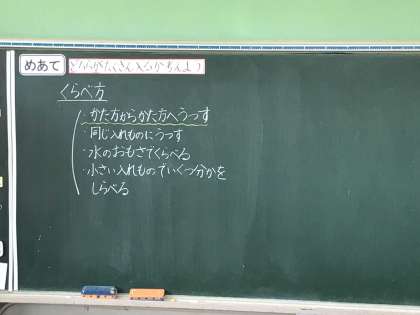 めあて どちらがたくさん入るか考えよう
くらべ方
・かた方からかた方へうつす
・同じ入れものにうつす
・水のおもさでくらべる
・小さい入れものでいくつ分かを
しらべる